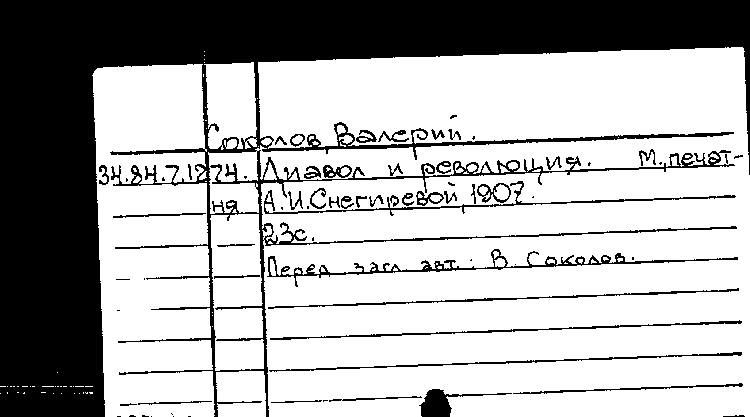 Соколов, Валерий.
34.84.7.1274. Диавол и революция. М., печат-
ня А.И.Снегиревой, 1907.
23с.
Перед загл. авт.: В. Соколов.